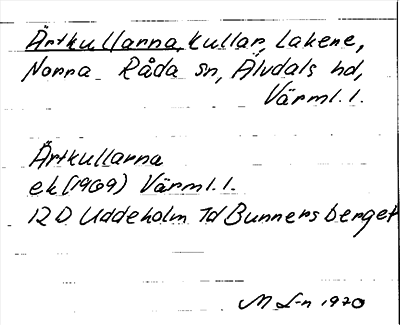 Ärtkullarna, kullar, Lakene,
Norra Råda sn, Älvdals hd,
Värml. l.
Ärtkullarna
ek (1969) Värml. l.
12 D Uddeholm 7d Bunnersberget
M L-n 1970